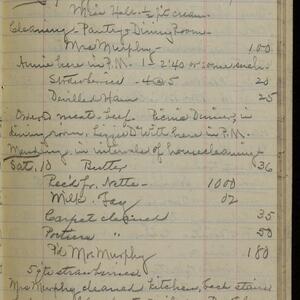 Miss Hall - ½ pt cream.
Cleaning - Pantry & Dining Room -
Mrs Murphy - 1.00
Annie here in P.M. 1-2'40
Strawberries - 4@5 20
Devilled Ham 25
meats - beef. Picnic Dinner, in
dining room. With here in P.M.
Mending in intervals of housecleaning -
Sat. 10 Butter 36
Rec'd fr. Nette - 1000
Milk. Fay 02
Carpet cleaned 35
Portiere " 50
Pd Mrs. Murphy 180
5 qts strawberries
Mrs Murphy cleaned kitchen, back stairs